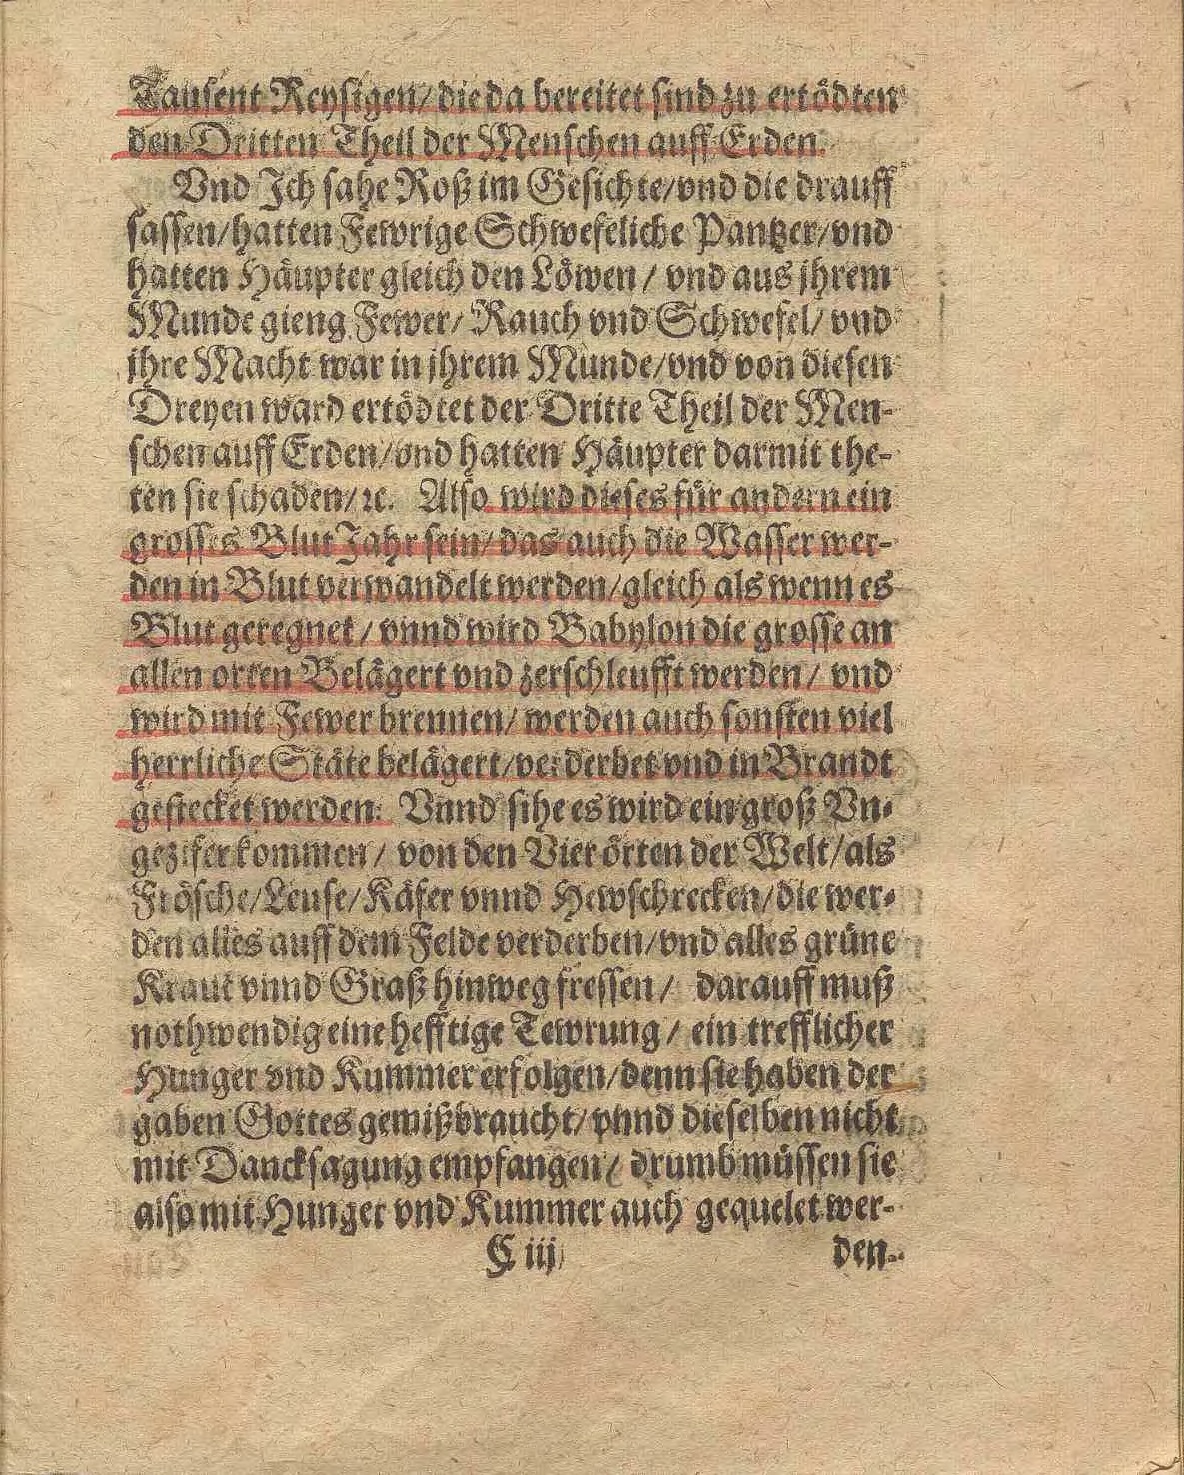 Tausent Reysigen/ die da bereitet sind zu ertödten
den Dritten Theil der Menschen auff Erden.
Vnd Ich sahe Roß im Gesichte/vnd die drauff
sassen/hatten Fewrige Schwefeliche Pantzer/vnd
hatten Häupter gleich den Löwen/ vnd aus jhrem
Munde gieng Fewer/ Rauch vnd Schwefel/ vnd
jhre Macht war in jhrem Munde/vnd von diesen
Dreyen ward ertödtet der Dritte Theil der Men-
schen auff Erden/vnd hatten Häupter darmit the-
ten sie schaden/ꝛc. Also wird dieses für andern ein
grosses Blut Jahr sein/ das auch die Wasser wer-
den in Blut verwandelt werden/gleich als wenn es
Blut geregnet/ vnnd wird Babylon die grosse an
allen orten Belägert vnd zerschleufft werden/ vnd
wird mit Fewer brennen/ werden auch sonsten viel
herrliche Stäte belägert/verderbet vnd in Brandt
gestecket werden: Vnnd sihe es wird ein groß Vn-
gezifer kommen/ von den Vier örten der Welt/als
Frösche/Leuse/Käfer vnnd Hewschrecken/die wer-
den alles auff dem Felde verderben/vnd alles grüne
Kraut vnnd Graß hinweg fressen/ darauff muß
nothwendig eine hefftige Tewrung/ ein trefflicher
Hunger vnd Kummer erfolgen/denn sie haben der
gaben Gottes gewißbraucht/ vnnd dieselben nicht
mit Dancksagung empfangen/ drumb müssen sie
also mit Hunger vnd Kummer auch gequelet wer-
C iij den.